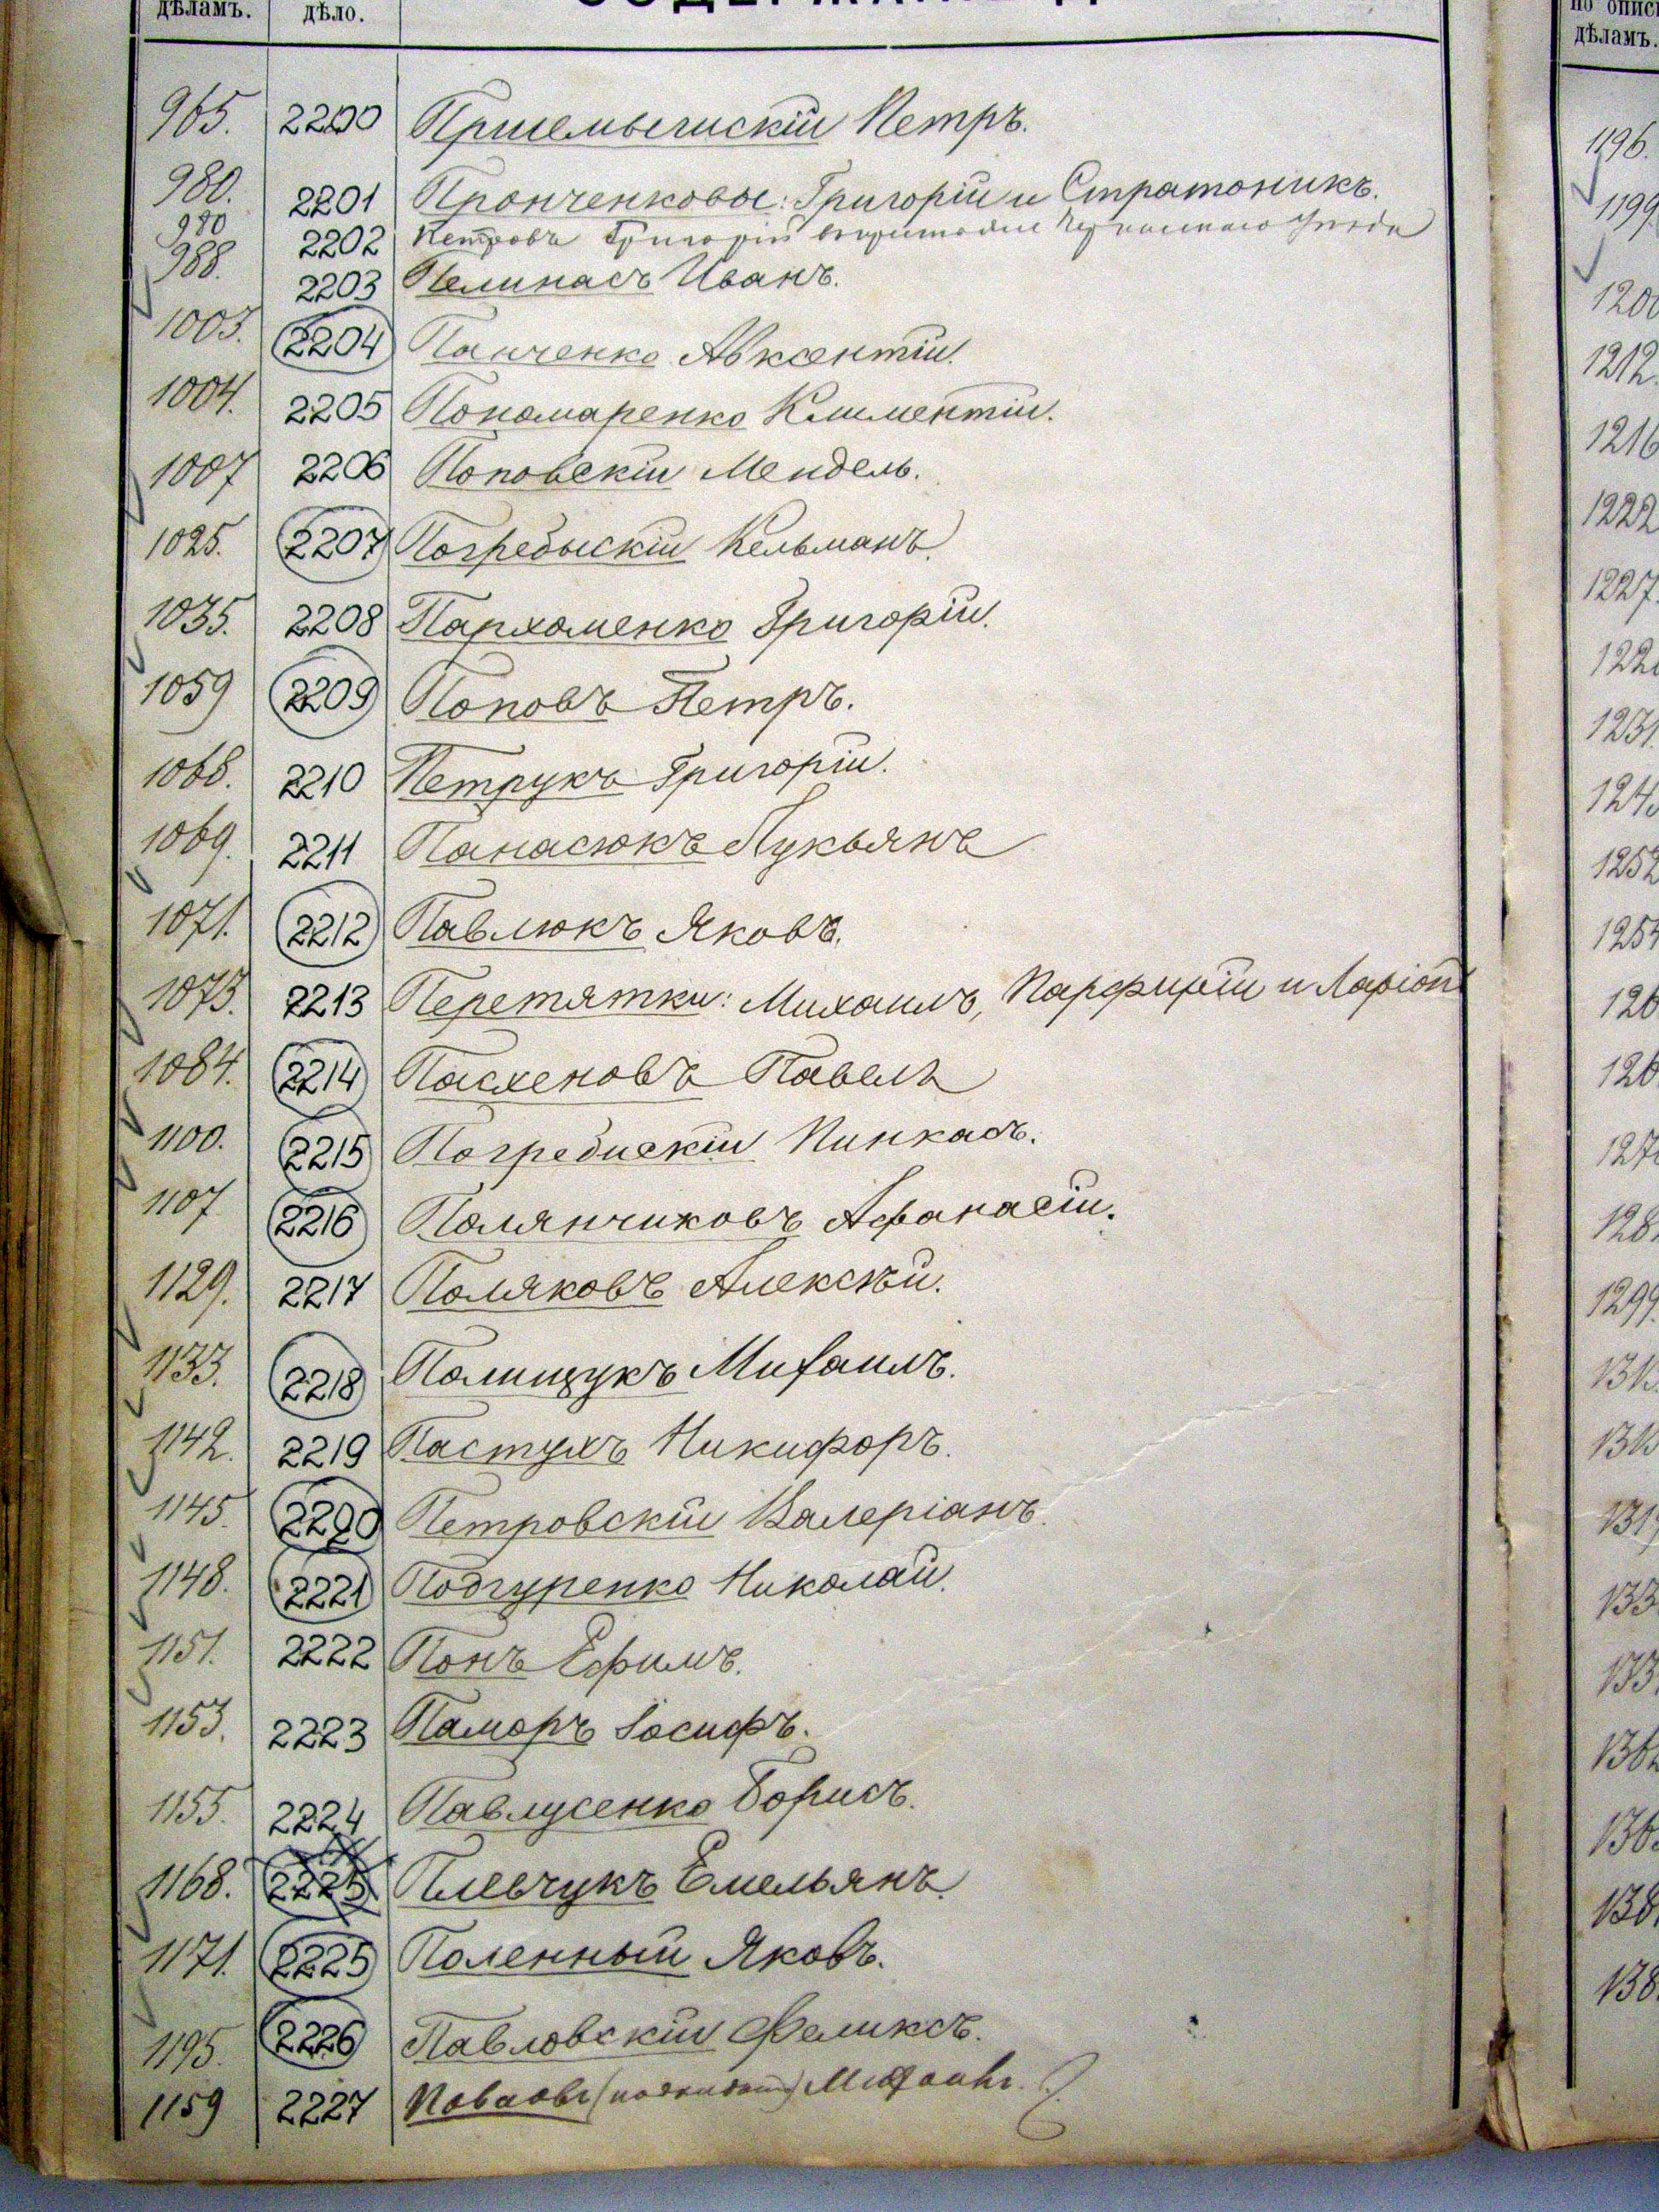 дѣламъ. дѣло. СОДЕРЖАНІЕ
965. 2200 Пршемычискій Петръ.
980. 2201 Пронченковы: Григорій и Стратоникъ.
980 2202 Петровъ Григорій уѣзда
988. 2203 Пелинасъ Иванъ.
1003. 2204 Панченко Авксентій.
1004. 2205 Пономаренко Климентій.
1007 2206 Поповскій Мендель.
1025. 2207 Погребыскій Кельманъ.
1035. 2208 Пархоменко Григорій.
1059 2209 Поповъ Петръ.
1068. 2210 Петрукъ Григорій.
1069. 2211 Панасюкъ Лукьянъ
1071. 2212 Павлюкъ Яковъ.
1073. 2213 Перетятки: Михаилъ, Парфирій и Ларіон
1084. 2214 Пасхеновъ Павелъ
1100. 2215 Погребискій Пинкасъ.
1107 2216 Полянчиковъ Афанасій.
1129. 2217 Поляковъ Алексѣй.
1133. 2218 Полищукъ Михаилъ.
1142. 2219 Пастухъ Никифоръ.
1145. 2220 Петровскій Валеріанъ.
1148. 2221 Подгуренко Николай.
1151. 2222 Понъ Ефимъ.
1153. 2223 Паморъ Іосифъ.
1155. 2224 Павлусенко Борисъ.
1168. 2225 Плевчукъ Емельянъ.
1171. 2225 Поленный Яковъ.
1195. 2226 Павловскій Феликсъ.
1159 2227
по описи
дѣламъ.
1196.
1199
1200
1212.
1216
1222
1227.
122
1231.
124
1252
1254
126
126
127
128
1299.
131
131
131
133
133
136
136
138
138